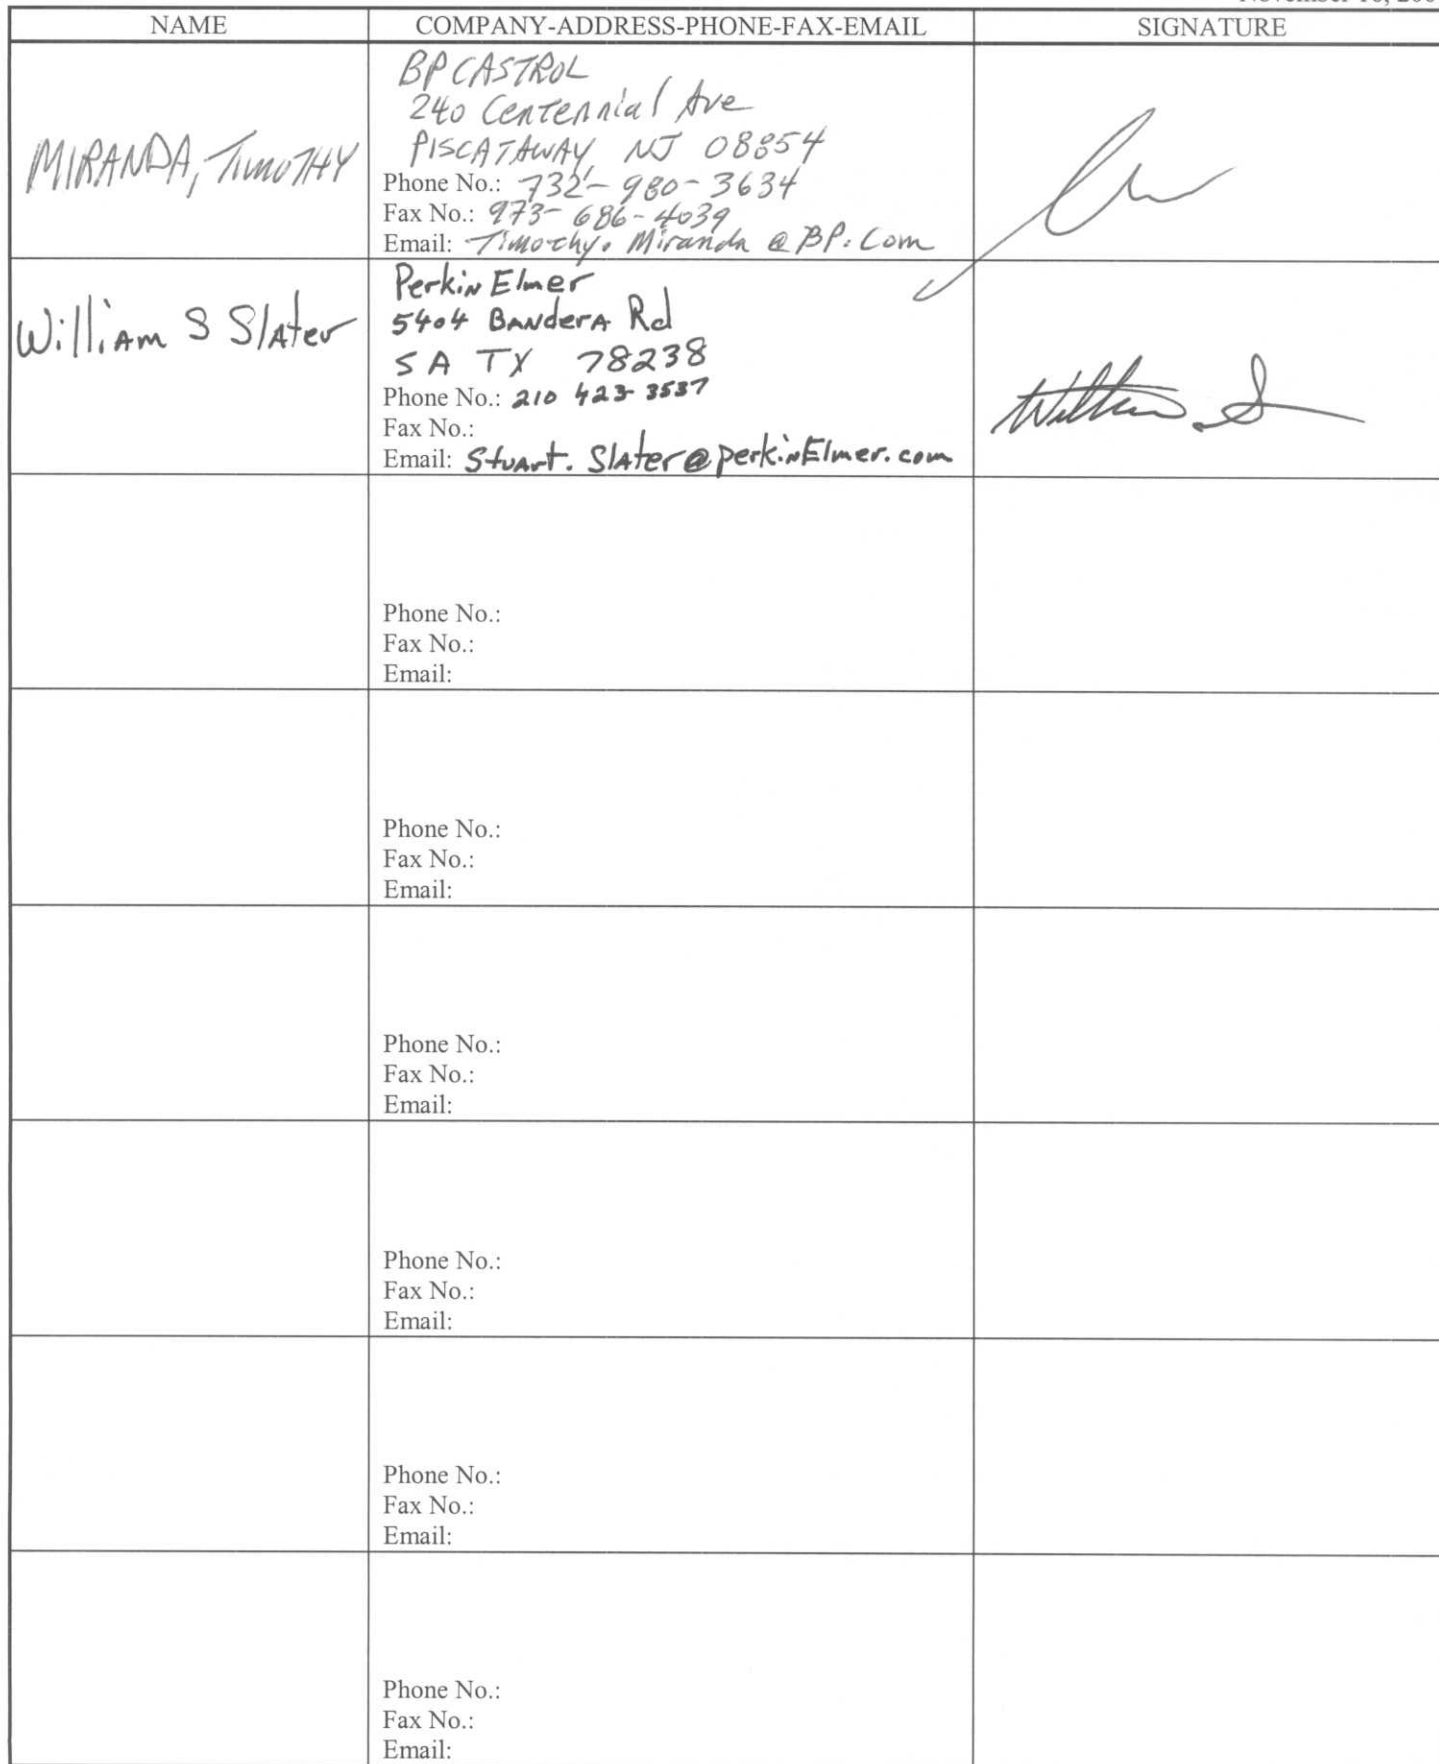 NAME
COMPANY-ADDRESS-PHONE-FAX-EMAIL
SIGNATURE
MIRANDA, TIMOTHY
BP CASTROL
240 Centennial Ave
PISCATAWAY, NJ 08854
Phone No.: 732-980-3634
Fax No.: 973-686-4039
Email: Timothy.Miranda@BP.Com
William S Slater
Perkin Elmer
5404 BANderA Rd
SA TX 78238
Phone No.: 210 423-3537
Fax No.:
Email: Stuart.Slater@perkinElmer.com
Phone No.:
Fax No.:
Email:
Phone No.:
Fax No.:
Email:
Phone No.:
Fax No.:
Email:
Phone No.:
Fax No.:
Email:
Phone No.:
Fax No.:
Email:
Phone No.:
Fax No.:
Email: